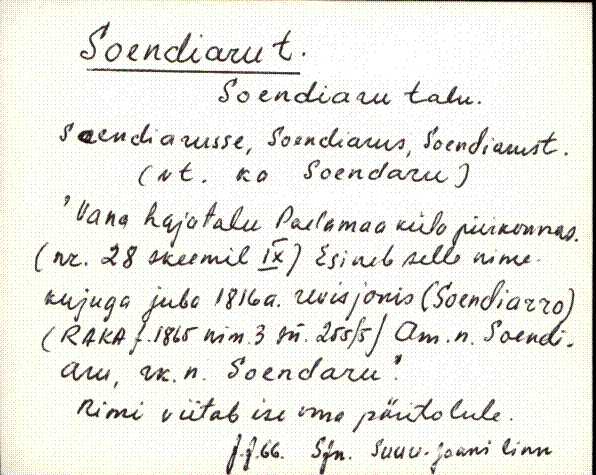 Soendiaru t.
Soendiaru talu.
Soendiarusse, Soendiarus, Soendiarust.
(vt. ka Soendaru)
"Vana hajatalu Paelamaa küla piirkonnas.
(nr. 28 skeemil IX) Esineb selle nime-
kujuga juba 1816a. revisjonis (Soendiarro)
(RAKA f.1865 nim.3 sü. 255/5) Am.n. Soendi-
aru, rk.n. Soendaru".
Nimi viitab ise oma päritolule.
Suure-Jaani linn